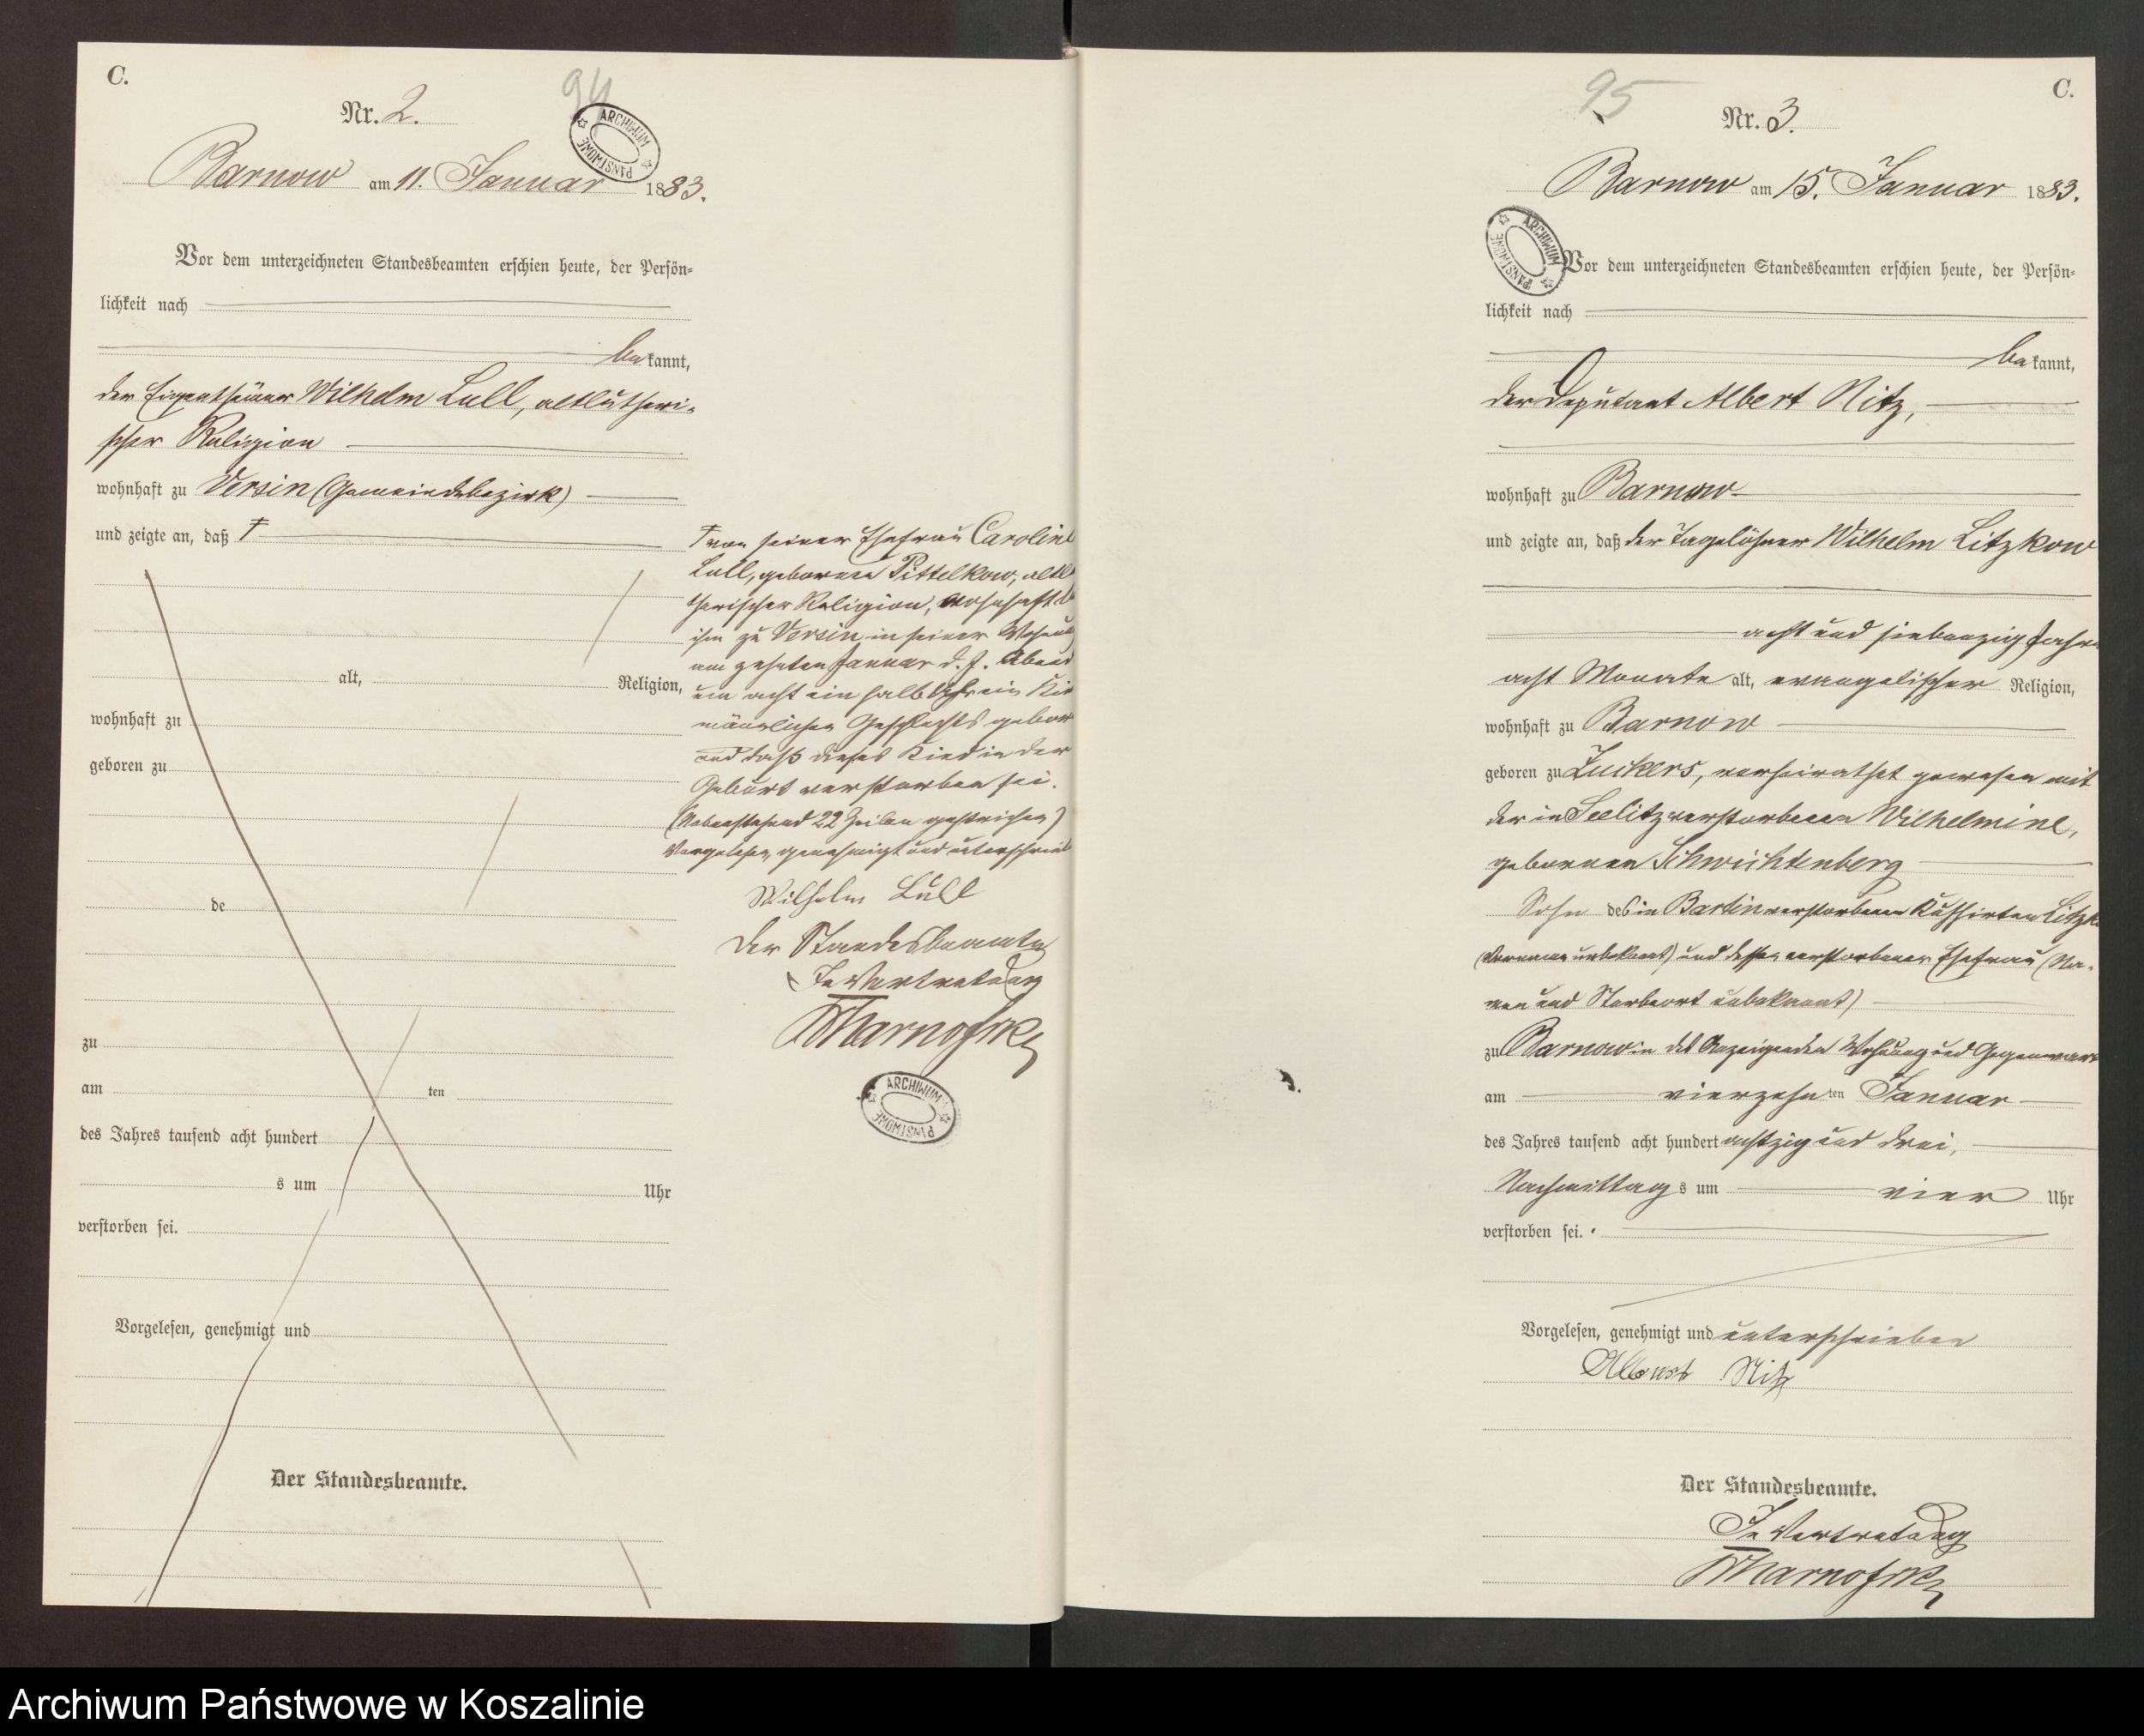 C.
94
Nr. 2.
ARCHIWUM PAŃSTWOWE
Barnow am 11. Januar 1883.
Vor dem unterzeichneten Standesbeamten erschien heute, der Persön-
lichkeit nach
bekannt,
der Eigenthümer Wilhelm Lull, altlutheri-
scher Religion
wohnhaft zu Versin (Gemeindebezirk)
und zeigte an, daß †
alt, Religion,
wohnhaft zu
geboren zu
de
zu
am ten
des Jahres tausend acht hundert
s um Uhr
verstorben sei.
Vorgelesen, genehmigt und
Der Standesbeamte.
† von seiner Ehefrau Caroline
Lull, geborenen Pittelkow, altlu
therischer Religion, wohnhaft b
ihm zu Versin in seiner Wohnun
am zehnten Januar d. J. Abend
um acht ein halb Uhr ein Kin
männlichen Geschlechts gebor
und daß dieses Kind in der
Geburt verstorben sei.
(Nebenstehend 22 Zeilen gestrichen)
Vorgelesen, genehmigt und unterschrieb
Wilhelm Lull
Der Standesbeamte
In Vertretung
ARCHIWUM PAŃSTWOWE
95
C.
Nr. 3.
Barnow am 15. Januar 1883.
ARCHIWUM PAŃSTWOWE
Vor dem unterzeichneten Standesbeamten erschien heute, der Persön-
lichkeit nach
bekannt,
der Deputant Albert Nitz,
wohnhaft zu Barnow
und zeigte an, daß der Tagelöhner Wilhelm Litzkow
acht und siebenzig Jahre
acht Monate alt, evangelischer Religion,
wohnhaft zu Barnow
geboren zu Zuckers, verheirathet gewesen mit
der in Seelitz verstorbenen Wilhelmine,
geborenen Schwichtenberg
Sohn des in Bartin verstorbenen Kuhhirten Litzk
(Vorname unbekannt) und dessen verstorbener Ehefrau (Na-
men und Sterbeort unbekannt)
zu Barnow in des Anzeigenden Wohnung und Gegenwart
am vierzehnten Januar
des Jahres tausend acht hundert achtzig und drei,
Nachmittags um vier Uhr
verstorben sei.
Vorgelesen, genehmigt und unterschrieben
Albert Nitz
Der Standesbeamte.
In Vertretung
Archiwum Państwowe w Koszalinie